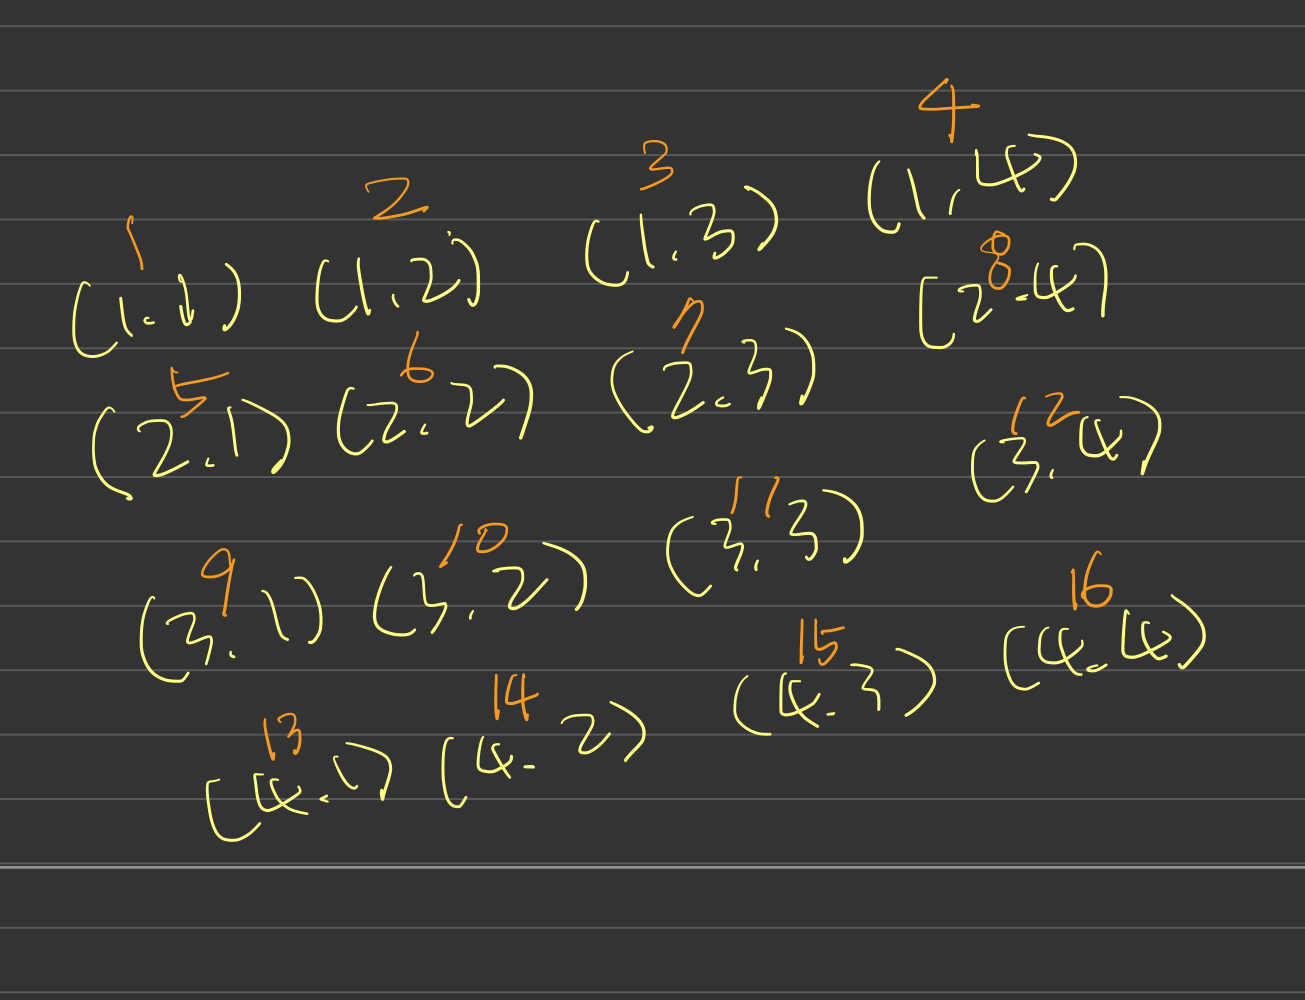 1 2 3 4
(1.1) (1,2) (1.3) (1,4)
5 6 7 8
(2.1) (2,2) (2.3) (2.4)
9 10 11 12
(3.1) (3.2) (3,3) (3,4)
13 14 15 16
(4.1) (4.2) (4.3) (4.4)